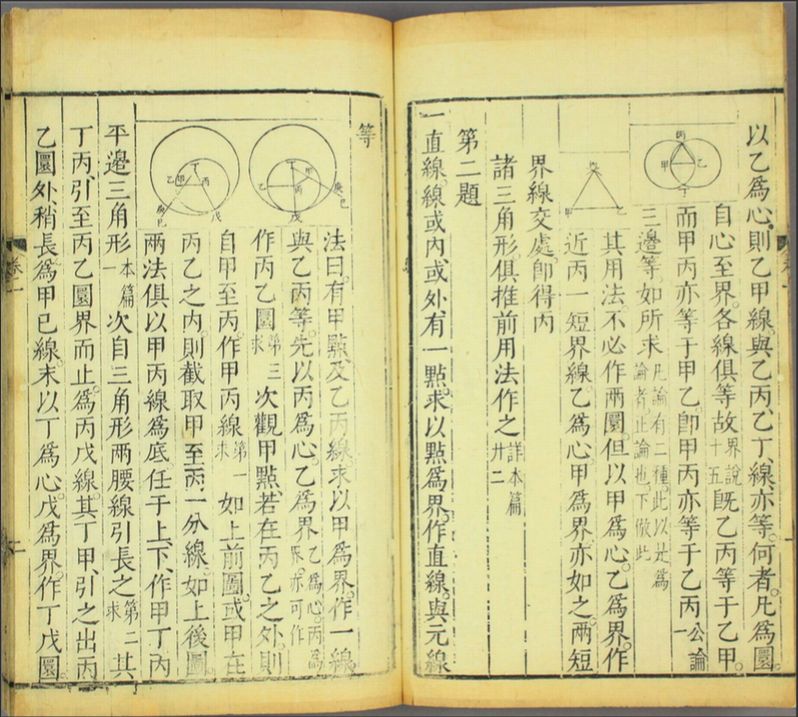 以乙爲心則乙甲線與乙丙乙丁線亦等何者凡爲圜
自心至界各線俱等故界說十五旣乙丙等于乙甲
而甲丙亦等于甲乙卽甲丙亦等于乙丙公論一
三邊等如所求凡論有二種此以是爲論者正論也下倣此
其用法不必作兩圜但以甲爲心乙爲界作
近丙一短界線乙爲心甲爲界亦如之兩短
界線交處卽得丙
諸三角形俱推前用法作之詳本篇卄二
第二題
一直線線或內或外有一點求以點爲界作直線與元線
等
法曰有甲點及乙丙線求以甲爲界作一線
與乙丙等先以丙爲心乙爲界乙爲心丙爲界亦可作
作丙乙圜第三求次觀甲點若在丙乙之外則
自甲至丙作甲丙線第一求如上前圖或甲在
丙乙之內則截取甲至丙一分線如上後圖
兩法俱以甲丙線爲底任于上下作甲丁丙
平邊三角形本篇一次自三角形兩腰線引長之第二求其
丁丙引至丙乙圜界而止爲丙戊線其丁甲引之出丙
乙圜外稍長爲甲己線末以丁爲心戊爲界作丁戊圜
卷一